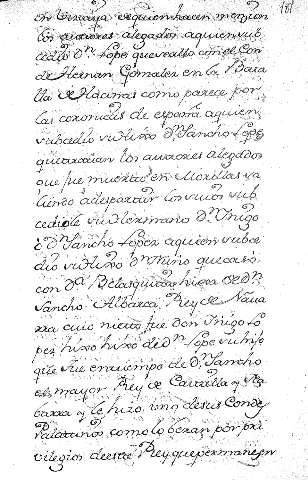 en Vizcaya a quien hacen mencion
los autores alegados a quien sub
cedio Dn. Lope que se allo con el Con
de Hernan Gonzalez en la Bata
lla de Hacinas como parece por
las coronicas de españa a quien
subcedio su hixo Dn. Sancho Lopez
los autores alegados
que fue muerto en Morillas sa
liendo a despartir los suios sub
cediole su Hermano Dn. Iñigo
é Dn. Sancho Lopez a quien subce
dio su Hixo Dn. Nuño que casó
con Da. Belasquita hixa de Dn.
Sancho Albarca, Rey de Nava
rra cuio nieto fue don Iñigo Lo
pez hixo hixo de dn. Lope su hijo
que fue en tiempo de Dn. Sancho
el mayor Rey de Castilla y Na
barra y le hizo uno de sus Condes
Palatinos como lo veran por pri
vilegios de este Rey que permanezen